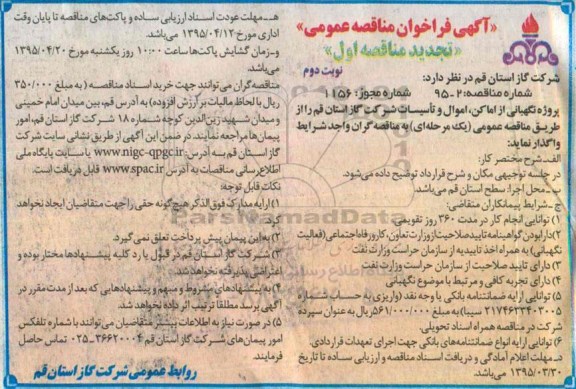 «آگهی فراخوان مناقصه عمومی»
«تجدید مناقصه اول»
نوبت دوم
شرکت گاز استان قم در نظر دارد:
شماره مناقصه: ۲-۹۵ شماره مجوز: ۱۱۵۶
پروژه نگهبانی از اماکن، اموال و تأسیسات شرکت گاز استان قم را از
طریق مناقصه عمومی (یک مرحله‌ای) به مناقصه‌گران واجد شرایط
واگذار نماید:
الف_شرح مختصر کار:
در جلسه توجیهی مکان و شرح قرارداد توضیح داده می‌شود.
ب_محل اجرا: سطح استان قم می‌باشد.
ج_شرایط پیمانکاران متقاضی:
۱) توانایی انجام کار در مدت ۳۶۰ روز تقویمی
۲) دارا بودن گواهینامه تایید صلاحیت از وزارت تعاون، کار و رفاه اجتماعی (فعالیت
نگهبانی) به همراه اخذ تاییدیه از سازمان حراست وزارت نفت
۳) دارای تایید صلاحیت از سازمان حراست وزارت نفت
۴) دارای تجربه کافی و مرتبط با موضوع نگهبانی
۵) توانایی ارایه ضمانتنامه بانکی یا وجه نقد (واریزی به حساب شماره
۲۱۷۴۶۳۳۴۰۳۰۰۵ سیبا) به مبلغ ۵۶۱/۰۰۰/۰۰۰ ریال به عنوان سپرده
شرکت در مناقصه همراه اسناد تحویلی
۶) توانایی ارایه انواع ضمانتنامه‌های بانکی جهت اجرای تعهدات قراردادی.
د_مهلت اعلام آمادگی و دریافت اسناد مناقصه و ارزیابی ساده تا تاریخ
۱۳۹۵/۰۳/۳۰ می‌باشد.
هـ_مهلت عودت اسناد ارزیابی ساده و پاکت‌های مناقصه تا پایان وقت
اداری مورخ ۱۳۹۵/۰۴/۱۲ می‌باشد.
و_زمان گشایش پاکت‌ها ساعت ۱۰:۰۰ روز یکشنبه مورخ ۱۳۹۵/۰۴/۲۰
می‌باشد.
مناقصه‌گران می‌توانند جهت خرید اسناد مناقصه (به مبلغ ۳۵۰/۰۰۰
ریال با لحاظ مالیات بر ارزش افزوده) به آدرس قم، بین میدان امام خمینی
و میدان شهید زین‌الدین کوچه شماره ۱۸ شرکت گاز استان قم، امور
پیمان‌ها مراجعه نمایند. در ضمن این آگهی از طریق نشانی سایت شرکت
گاز استان قم به آدرس: www.nigc-qpgc.ir یا سایت پایگاه ملی
اطلاع‌رسانی مناقصات به آدرس www.spac.ir قابل دریافت است.
نکات قابل توجه:
۱) ارایه مدارک فوق الذکر هیچ‌گونه حقی را جهت متقاضیان ایجاد نخواهد
کرد.
۲) به این پیمان پیش پرداخت تعلق نمی‌گیرد.
۳) شرکت گاز استان قم در قبول یا رد کلیه پیشنهادها مختار بوده و
اعتراضی پذیرفته نخواهد شد.
۴) به پیشنهادهای مشروط و مبهم و پیشنهادهایی که بعد از مدت مقرر در
آگهی برسد مطلقا ترتیب اثر داده نخواهد شد.
۵) در صورت نیاز به اطلاعات بیشتر متقاضیان می‌توانند با شماره تلفکس
امور پیمان‌های شرکت گاز استان قم ۳۶۶۲۰۰۰۴-۰۲۵ تماس حاصل
فرمایند.
روابط عمومی شرکت گاز استان قم
ParsNamadData